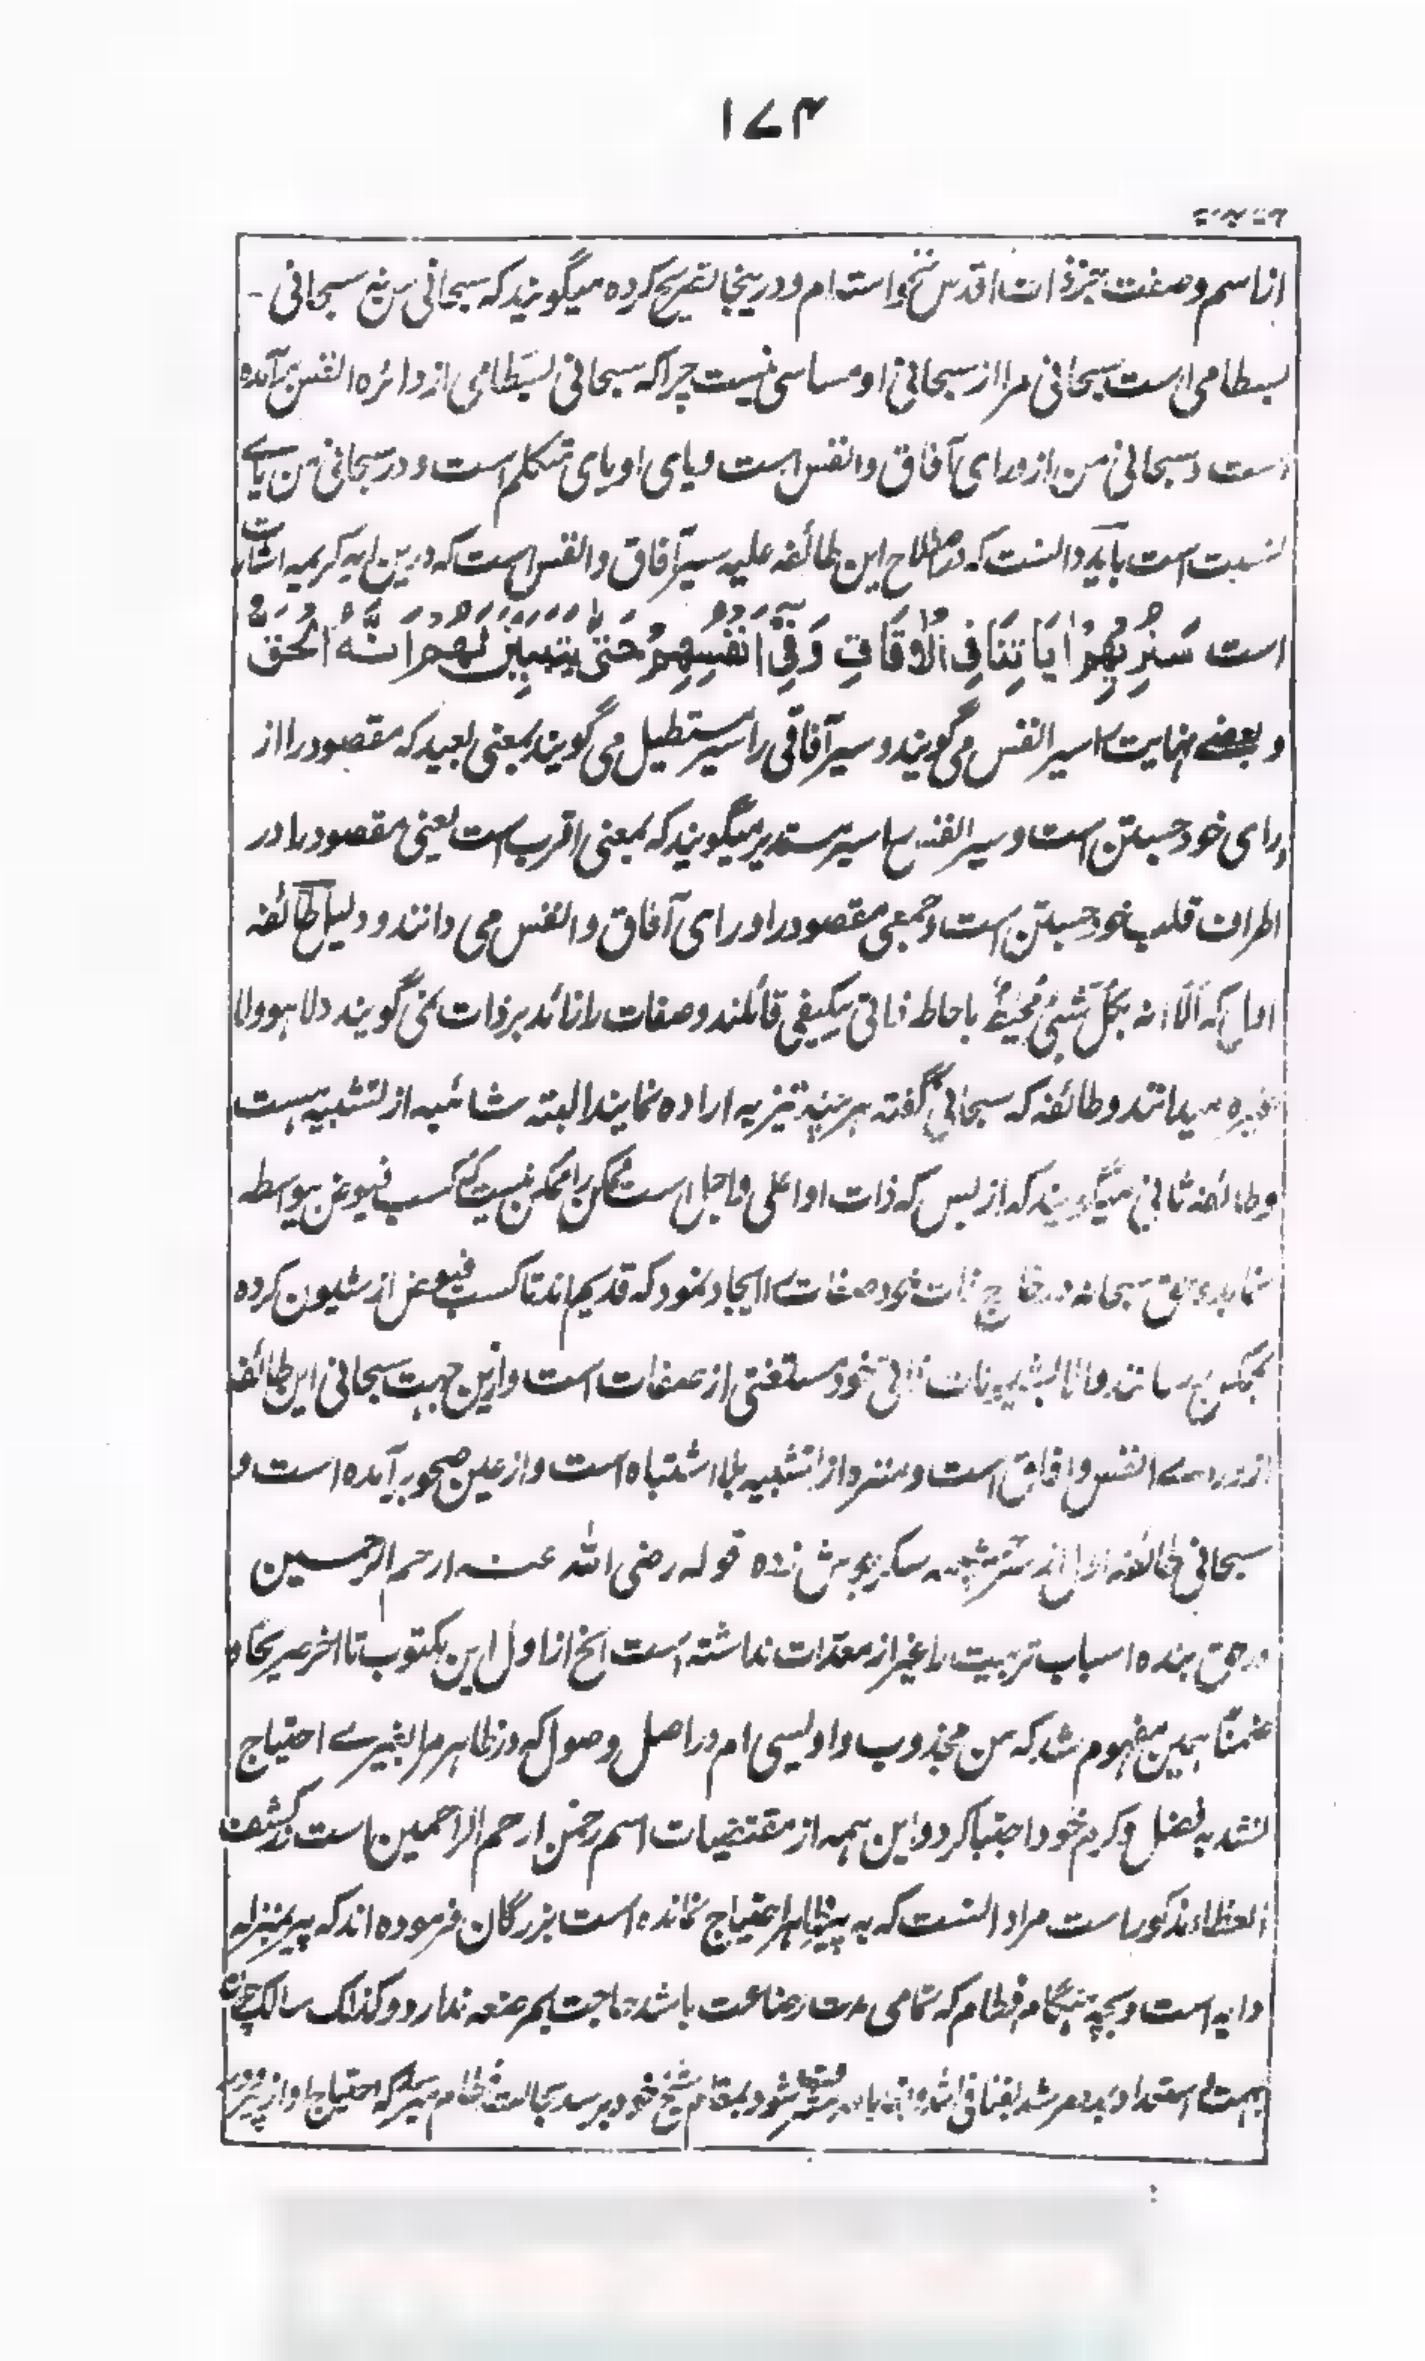 ۱۷۴
از اسم وصفت بجز ذات اقدس نخواسته ام ودرینجا تصریح کرده میگویند که سبحانی من نه سبحانی
بسطامی است سبحانی مرا از سبحانی او مساسی نیست چرا که سبحانی بسطامی از دائره انفس برآمده
است وسبحانی من از ورای آفاق وانفس است ویای او یای متکلم است ودر سبحانی من یائے
نسبت است باید دانست که در اصطلاح این طائفه علیه سیر آفاق وانفس است که درین ایه کریمه اشارت
است سَنُرِيْهِمْ اٰيَاتِنَا فِي الْاٰفَاقِ وَفِيْ اَنْفُسِهِمْ حَتّٰى يَتَبَيَّنَ لَهُمْ اَنَّهُ الْحَقُّ
و بعضے نهایت را سیر انفس می گویند و سیر آفاقی را سیر مستطیل می گویند بمعنی بعید که مقصود را از
ورای خود جستن است وسیر انفسی را سیر مستدیر میگویند که بمعنی اقرب است یعنی مقصود را در
اطراف قلب خود جستن است و جمعی مقصود را ورای آفاق وانفس می دانند و دلیل طائفه
اول که اَلَا انه بِكُلِّ شَيْءٍ مُّحِيْطٌ باحاطه ذاتی بیکیفی قائلند وصفات را زائد بر ذات نمی گویند ولا هو ولا
غیره میدانند وطائفه که سبحانی گفته هر چند تنزیه اراده نمایند البته شائبه از تشبیه هست
وطائفه ثانی میگویند که از بس که ذات او اعلی واجل است ممکن را ممکن نیست که کسب فیوض بیواسطه
نماید حق سبحانه در خارج ذات خود صفات را ایجاد نمود که قدیم اند تا کسب فیوض از شیون کرده
بممکن رسانند ذات خود مستغنی از صفات است وازین جهت سبحانی این طائفه
از ورائے انفس وافاق است ومنزه از تشبیه بلا اشتباه است واز عین صحو بر آمده است و
سبحانی طائفه اول از سرچشمه سکر بجوش زده قوله رضی الله عنه ارحم الراحمین
در حق بنده اسباب تربیت را غیر از معدات نداشته است الخ از اول این مکتوب تا اخر هر یکجا و
ضمناً همین مفهوم شد که من مجذوب واویسی ام در اصل وصول که در ظاهر مرا بغیرے احتیاج
نشد به فضل وکرم خود اجتبا کرد واین همه از مقتضیات اسم رحمن ارحم الراحمین است در کشف
الغطاء مذکور است مراد انست که به پیر ظاهر احتیاج نمانده است بزرگان فرموده اند که پیر بمنزله
دایه است وبچه هنگام فطام که تمامی مدت رضاعت باشد حاجت بمرضعه ندارد وکذلک سالک چون
استعداد مرشد بفنا فی الله شود بمقام شیخ خود برسد بحالت فطام میرسد که احتیاج او از پیر